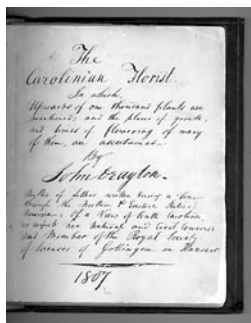 The
Carolinian Florist.
In which,
Upwards of one thousand plants are
mentioned; and the places of growth,
and times of flowering of many
of them, are ascertained.
By
John Drayton.
Author of letters written during a tour
through the Northern & Eastern States;
; Of a View of South Carolina,
as respects her Natural and Civil Concerns;
and Member of the Royal Society
of Sciences of Gottingen in Hanover
1807